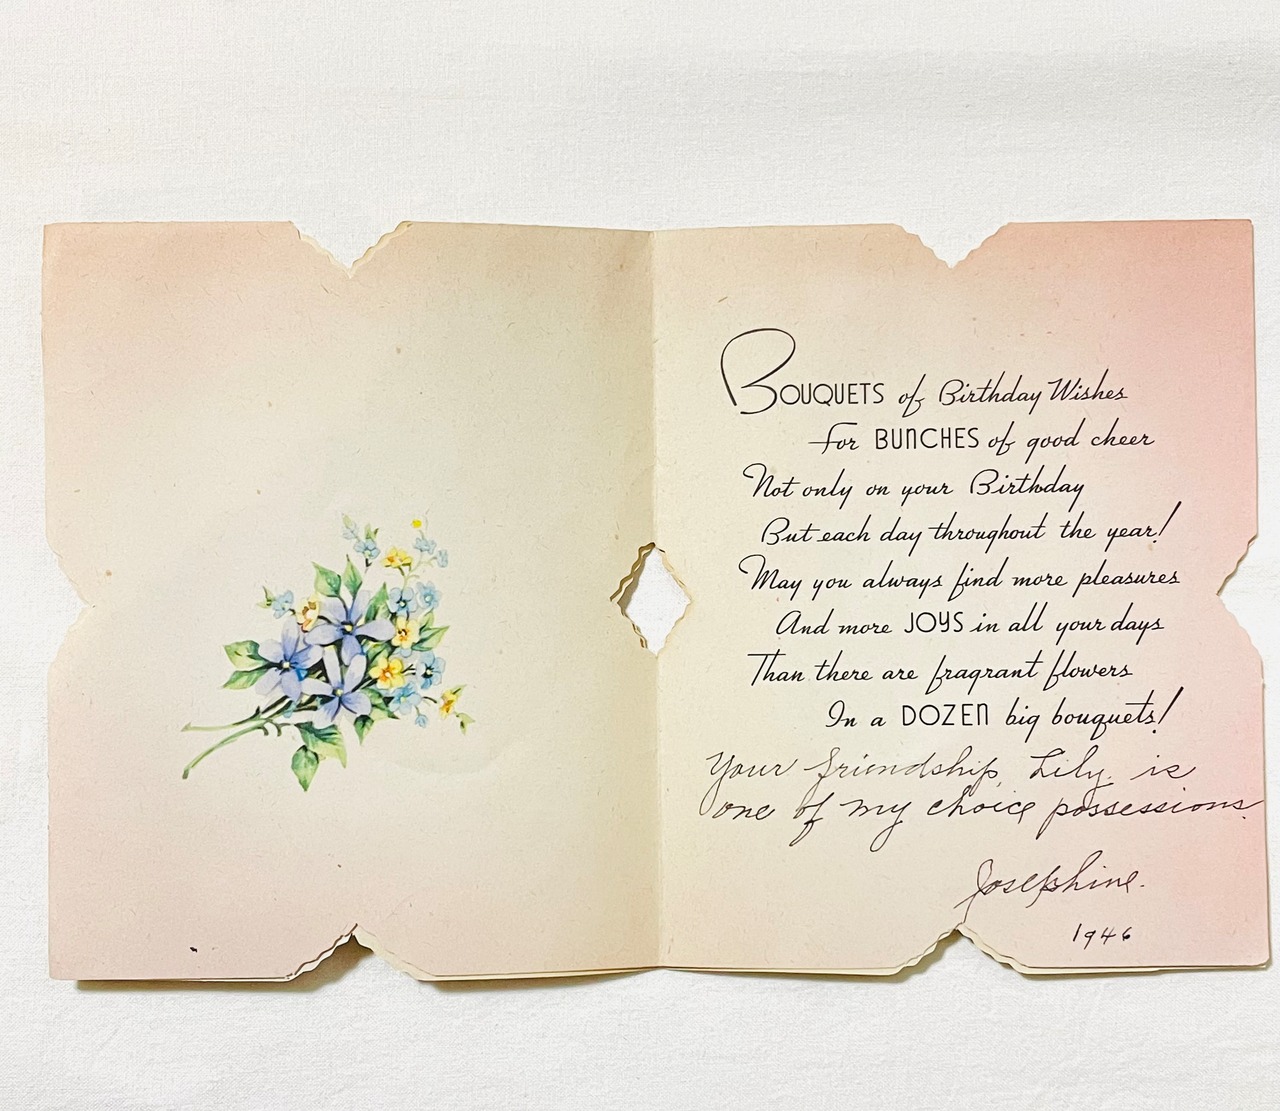 BOUQUETS of Birthday Wishes
For BUNCHES of good cheer
Not only on your Birthday
But each day throughout the year!
May you always find more pleasures
And more JOYS in all your days
Than there are fragrant flowers
In a DOZEN big bouquets!
Your friendship, Lily, is
one of my choice possessions.
Josephine.
1946